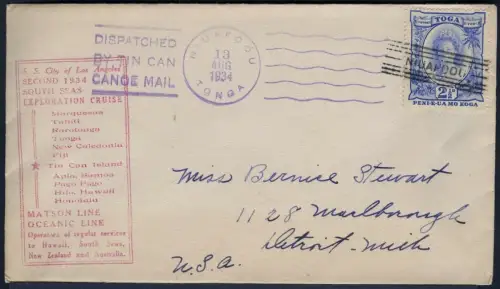 S. S. City of Los Angeles
SECOND 1934
SOUTH SEAS
EXPLORATION CRUISE
Marquesas
Tahiti
Rarotonga
Tonga
New Caledonia
Fiji
Tin Can Island
Apia, Samoa
Pago Pago
Hilo, Hawaii
Honolulu
MATSON LINE
OCEANIC LINE
Operators of regular services
to Hawaii, South Seas,
New Zealand and Australia.
DISPATCHED
BY TIN CAN
CANOE MAIL
NIUAFOOU
13
AUG
1934
TONGA
TOGA
NIUAFOOU
2½
PENI-E-UA MO KOGA
Miss Bernice Stewart
1128 Marlborough
Detroit - Mich
U.S.A.